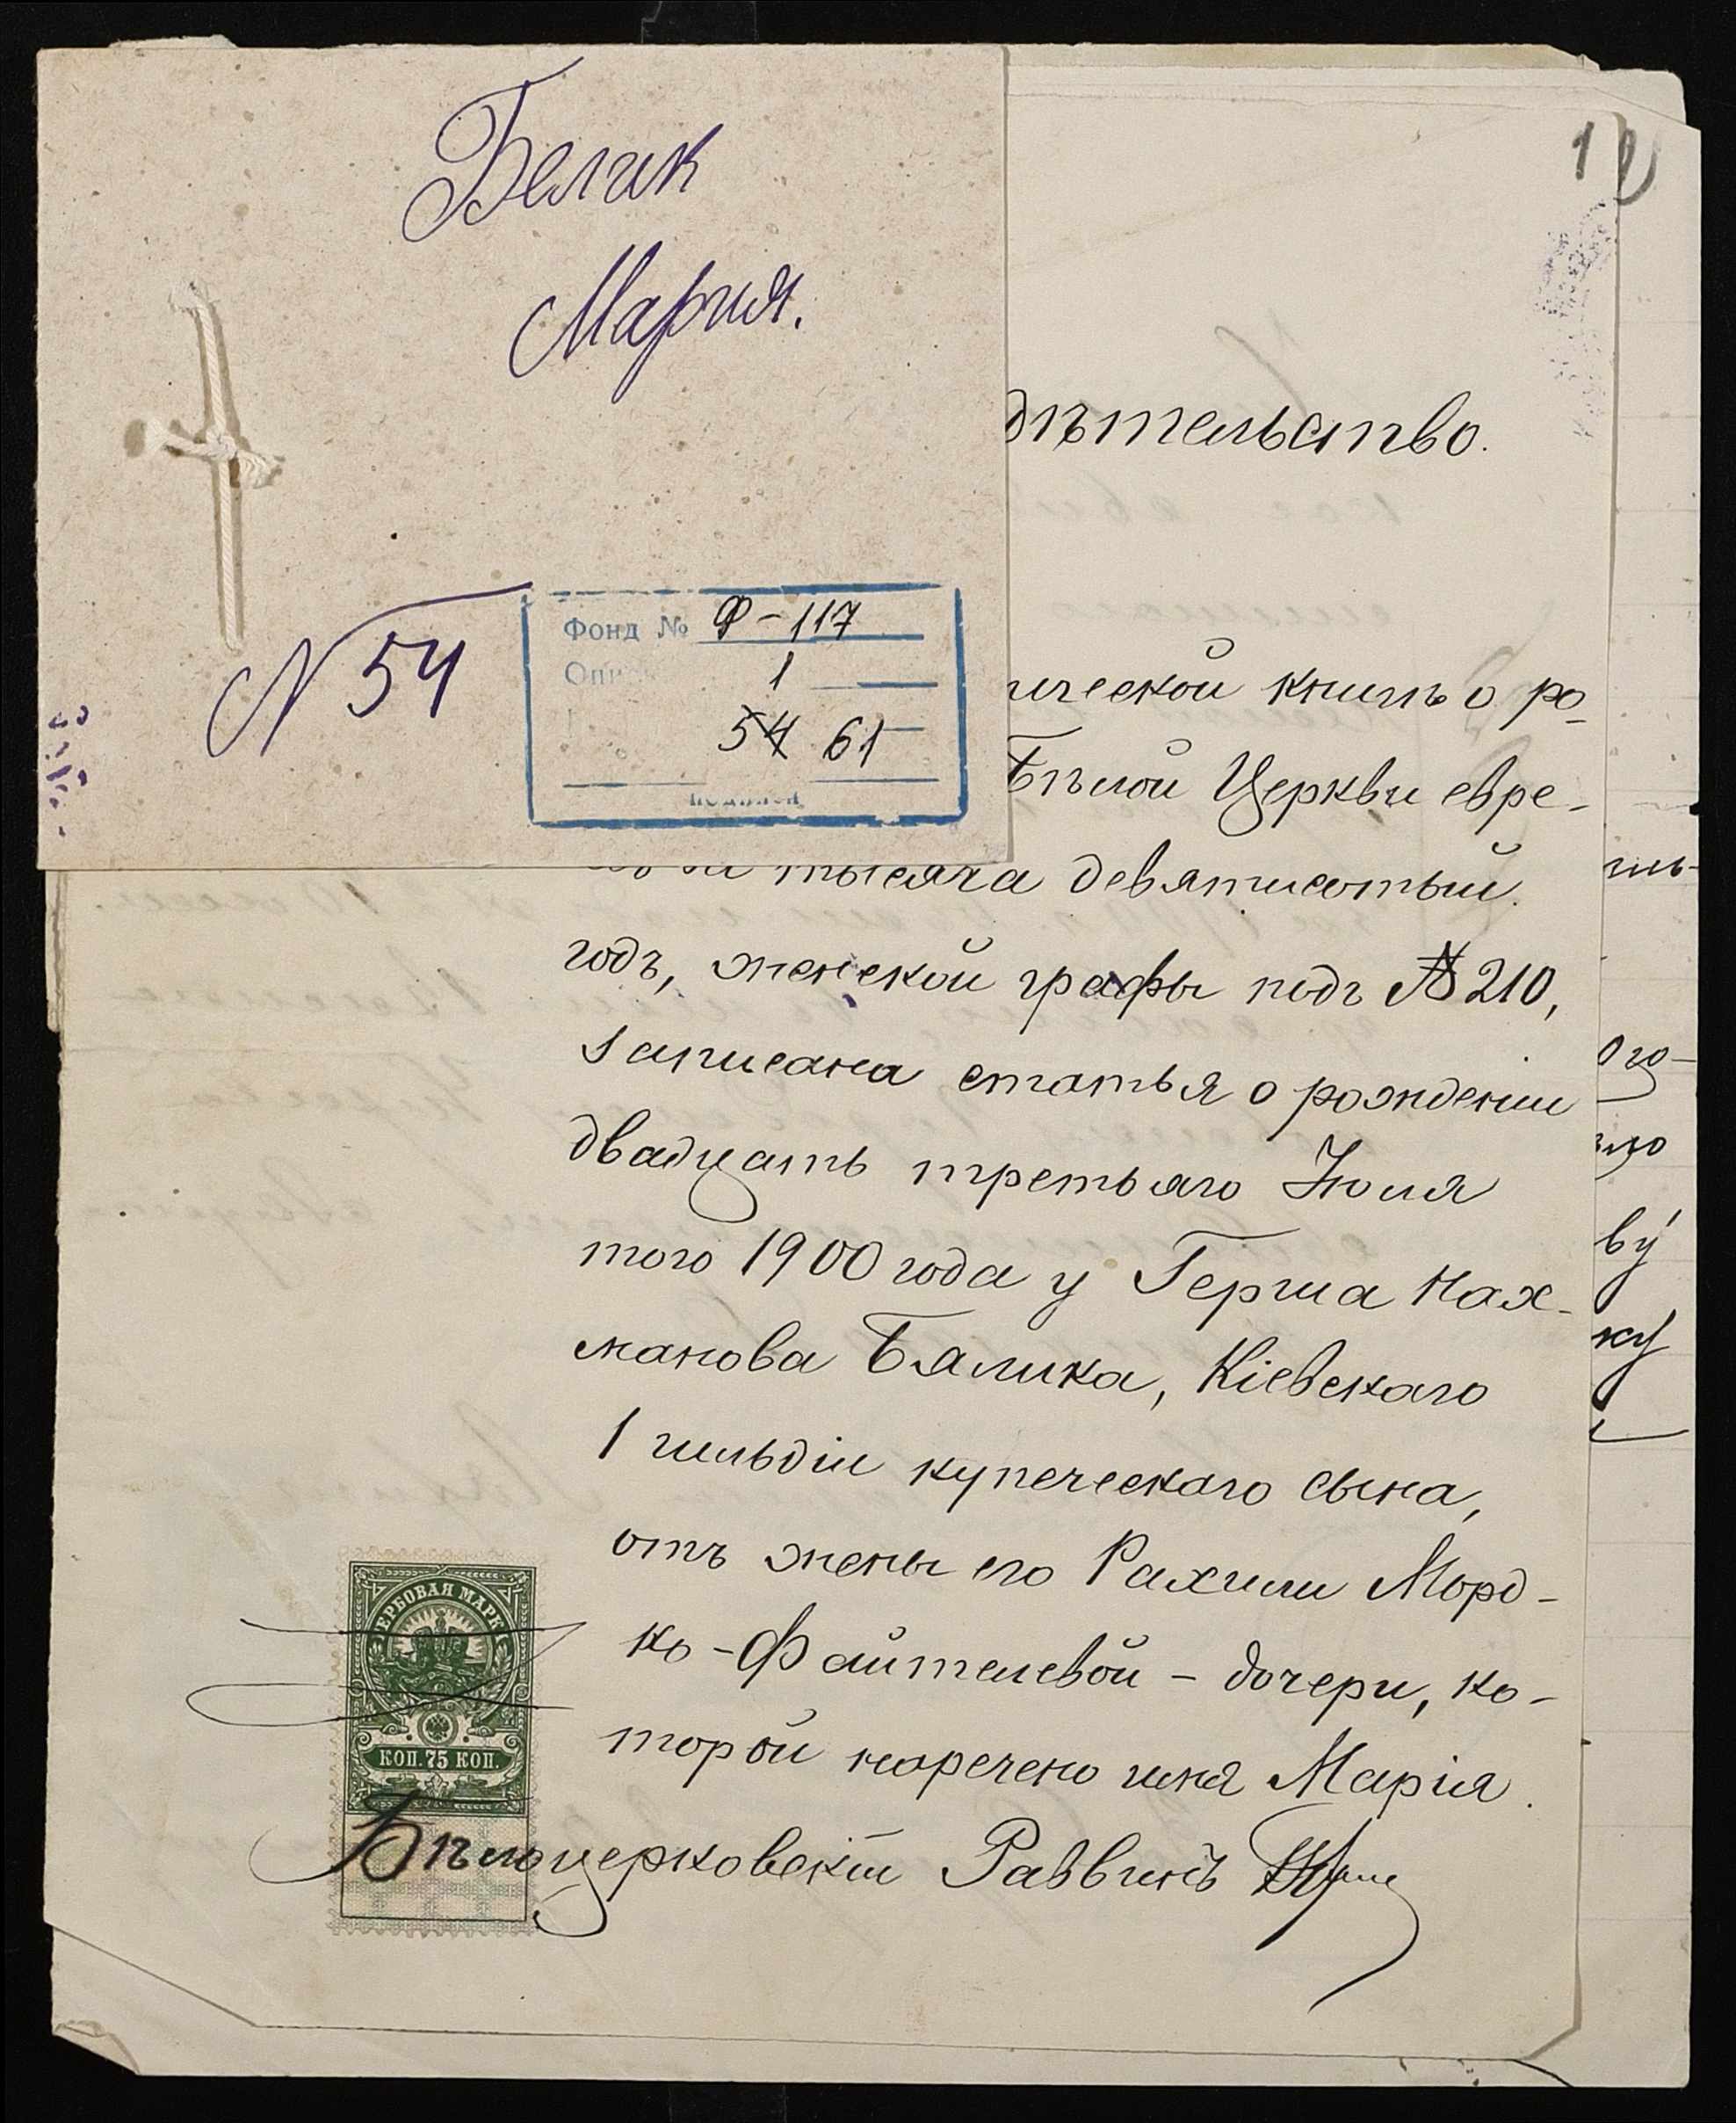 Белик
Мария.
N 54
Фонд № Ф-117
Опись 1
54 61
1
дѣтельство.
ической книгѣ о ро-
Бѣлой Церкви евре-
тысяча девятисотый
годъ, женской графы подъ № 210,
записана статья о рожденіи
двадцать третьяго Июля
того 1900 года у Герша Нах-
манова Бялика, Кіевскаго
1 гильдіи купеческаго сына,
отъ жены его Рахили Морд-
ко-Файтелевой - дочери, ко-
торой наречено имя Марія.
Бѣлоцерковскій Раввинъ
ГЕРБОВАЯ МАРКА
КОП. 75 КОП.
ого-
ву
ку